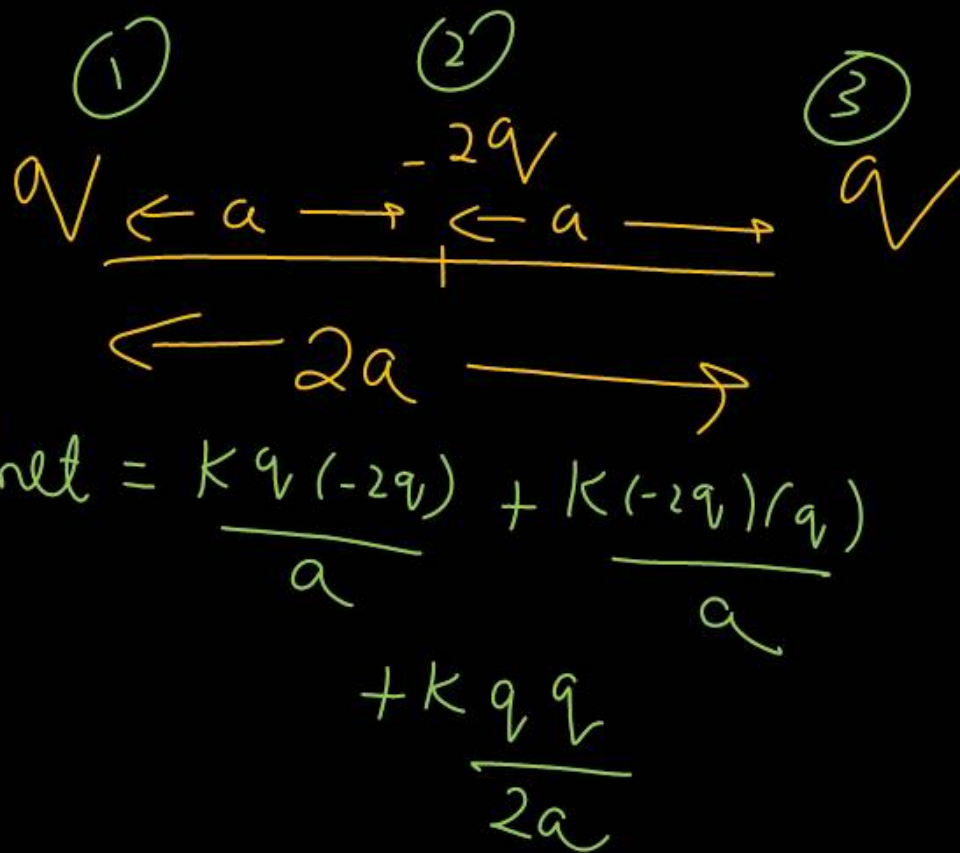 ① ② ③
-2q
q ← a → ← a → q
← 2a →
net = Kq(-2q)/a + K(-2q)(q)/a
+ K q q/2a